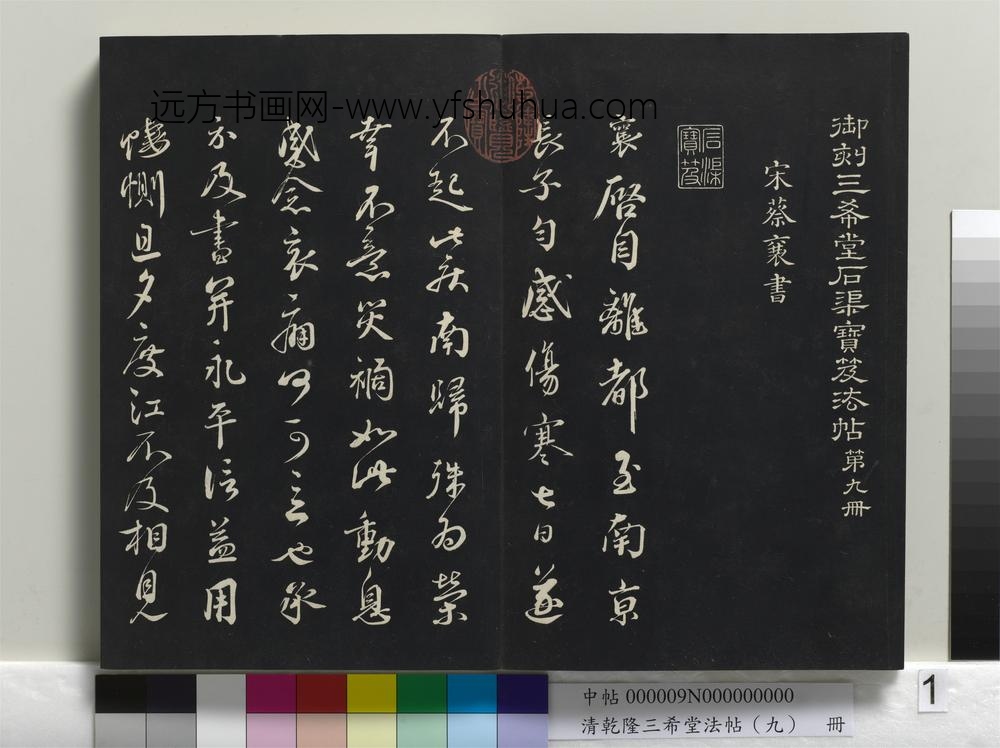 御刻三希堂石渠寶笈法帖第九冊
宋蔡襄書
石渠寶笈
襄啓自離都至南京
長子勻感傷寒七日遂
不起此疾南歸殊為榮
幸不意災禍如此動息
感念哀痛何可言也承
示及書并永平信益用
悽惻旦夕度江不及相見
远方书画网-www.yfshuhua.com
中帖 000009N000000000
清乾隆三希堂法帖（九） 冊
1